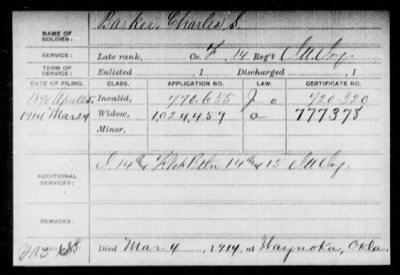 NAME OF SOLDIER: Barker, Charles S.
SERVICE: Late rank, Co. F, 14 Reg't Ill Inf.
TERM OF SERVICE: Enlisted , 1 Discharged , 1
DATE OF FILING. CLASS. APPLICATION NO. LAW. CERTIFICATE NO.
1890 Invalid, 770.655 J o 720.320
1914 Mar 24 Widow, 1.024.457 a 777378
Minor,
ADDITIONAL SERVICES: 14 Ill Inf.
REMARKS:
Died Mar 4, 1914, at Waynoka, Okla.